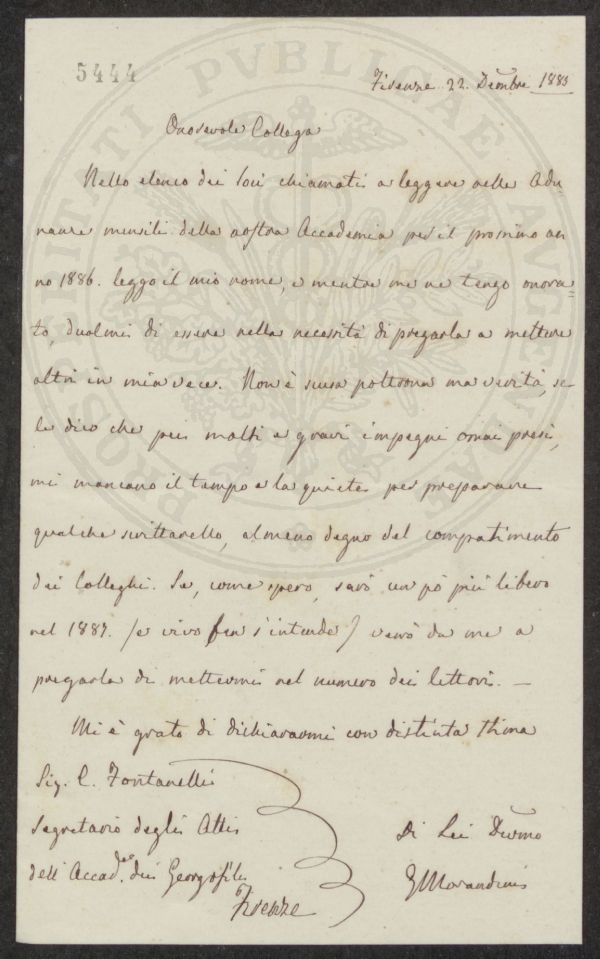 5444
Firenze 22. Dicembre 1885
Onorevole Collega
Nello elenco dei Soci chiamati a leggere nelle Adu-
nanze mensili della nostra Accademia per il prossimo an
no 1886. leggo il mio nome, e mentre me ne tengo onora=
to, duolmi di essere nella necessità di pregarla a mettere
altri in mia vece. Non è scusa poltrona ma verità, se
le dico che per molti e gravi impegni omai presi,
mi mancano il tempo e la quiete per preparare
qualche scrittarello, almeno degno del compatimento
dei Colleghi. Se, come spero, sarò un pò più libero
nel 1887. (e vivo s'intende) verrò da me a
pregarla di mettermi nel numero dei lettori. —
Mi è grato di dichiararmi con distinta stima
Sig. C. Fontanelli
Segretario degli Atti
dell'Accad.ia dei Georgofili
Firenze
Di Lei Devmo
GMorandini
PROSPERITATI PVBLICAE AVGENDAE